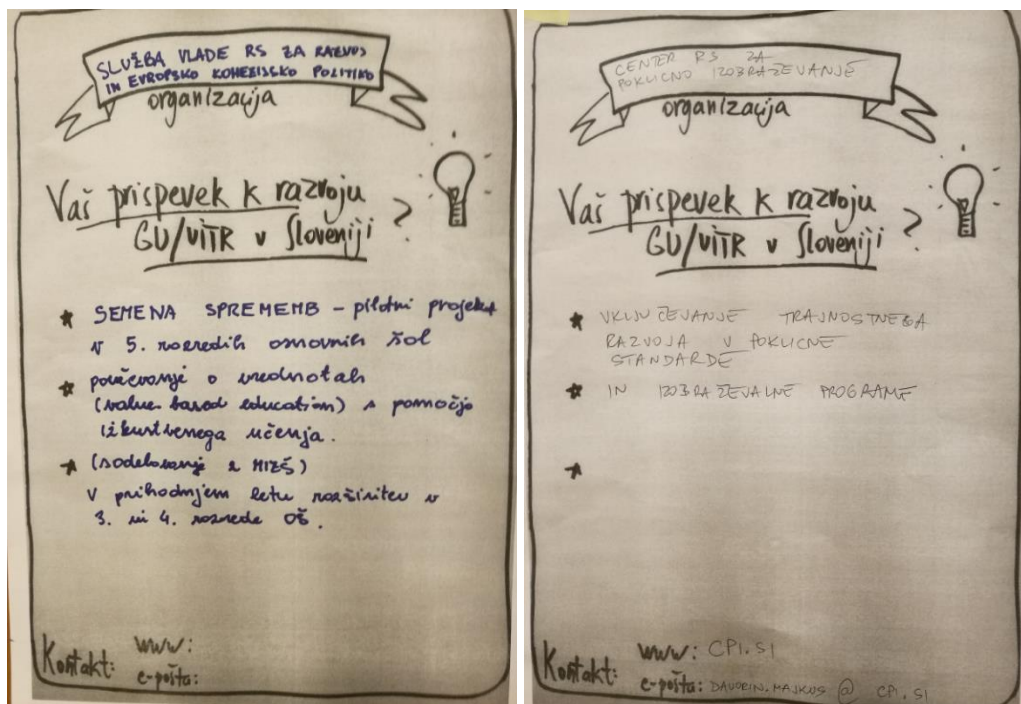 SLUŽBA VLADE RS ZA RAZVOJ
IN EVROPSKO KOHEZIJSKO POLITIKO
organizacija
Vaš prispevek k razvoju
GU/VITR v Sloveniji ?
★ SEMENA SPREMEMB – pilotni projekt
v 5. razredih osnovnih šol
★ poučevanje o vrednotah
(value based education) s pomočjo
izkustvenega učenja.
★ (sodelovanje z MIZŠ)
V prihodnjem letu razširitev v
3. in 4. razrede OŠ.
Kontakt: www:
e-pošta:
CENTER RS ZA
POKLICNO IZOBRAŽEVANJE
organizacija
Vaš prispevek k razvoju
GU/VITR v Sloveniji ?
★ VKLJUČEVANJE TRAJNOSTNEGA
RAZVOJA V POKLICNE
STANDARDE
★ IN IZOBRAŽEVALNE PROGRAME
★
Kontakt: www: CPI.SI
e-pošta: DAVORIN.MAJKUS @ CPI.SI